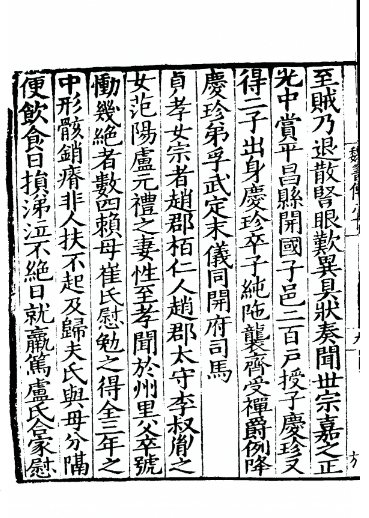 至賊乃退散豎眼歎異具狀奏聞世宗嘉之正
光中賞平昌縣開國子邑三百戶授子慶珍又
得二子出身慶珍卒子純陁襲齊受禪爵例降
慶珍弟孚武定末儀同開府司馬
貞孝女宗者趙郡栢仁人趙郡太守李叔胤之
女范陽盧元禮之妻性至孝聞於州里父卒號
慟幾絕者數四賴母崔氏慰勉之得全三年之
中形骸銷瘠非人扶不起及歸夫氏與母分隔
便飲食日損涕泣不絕日就羸篤盧氏合家慰